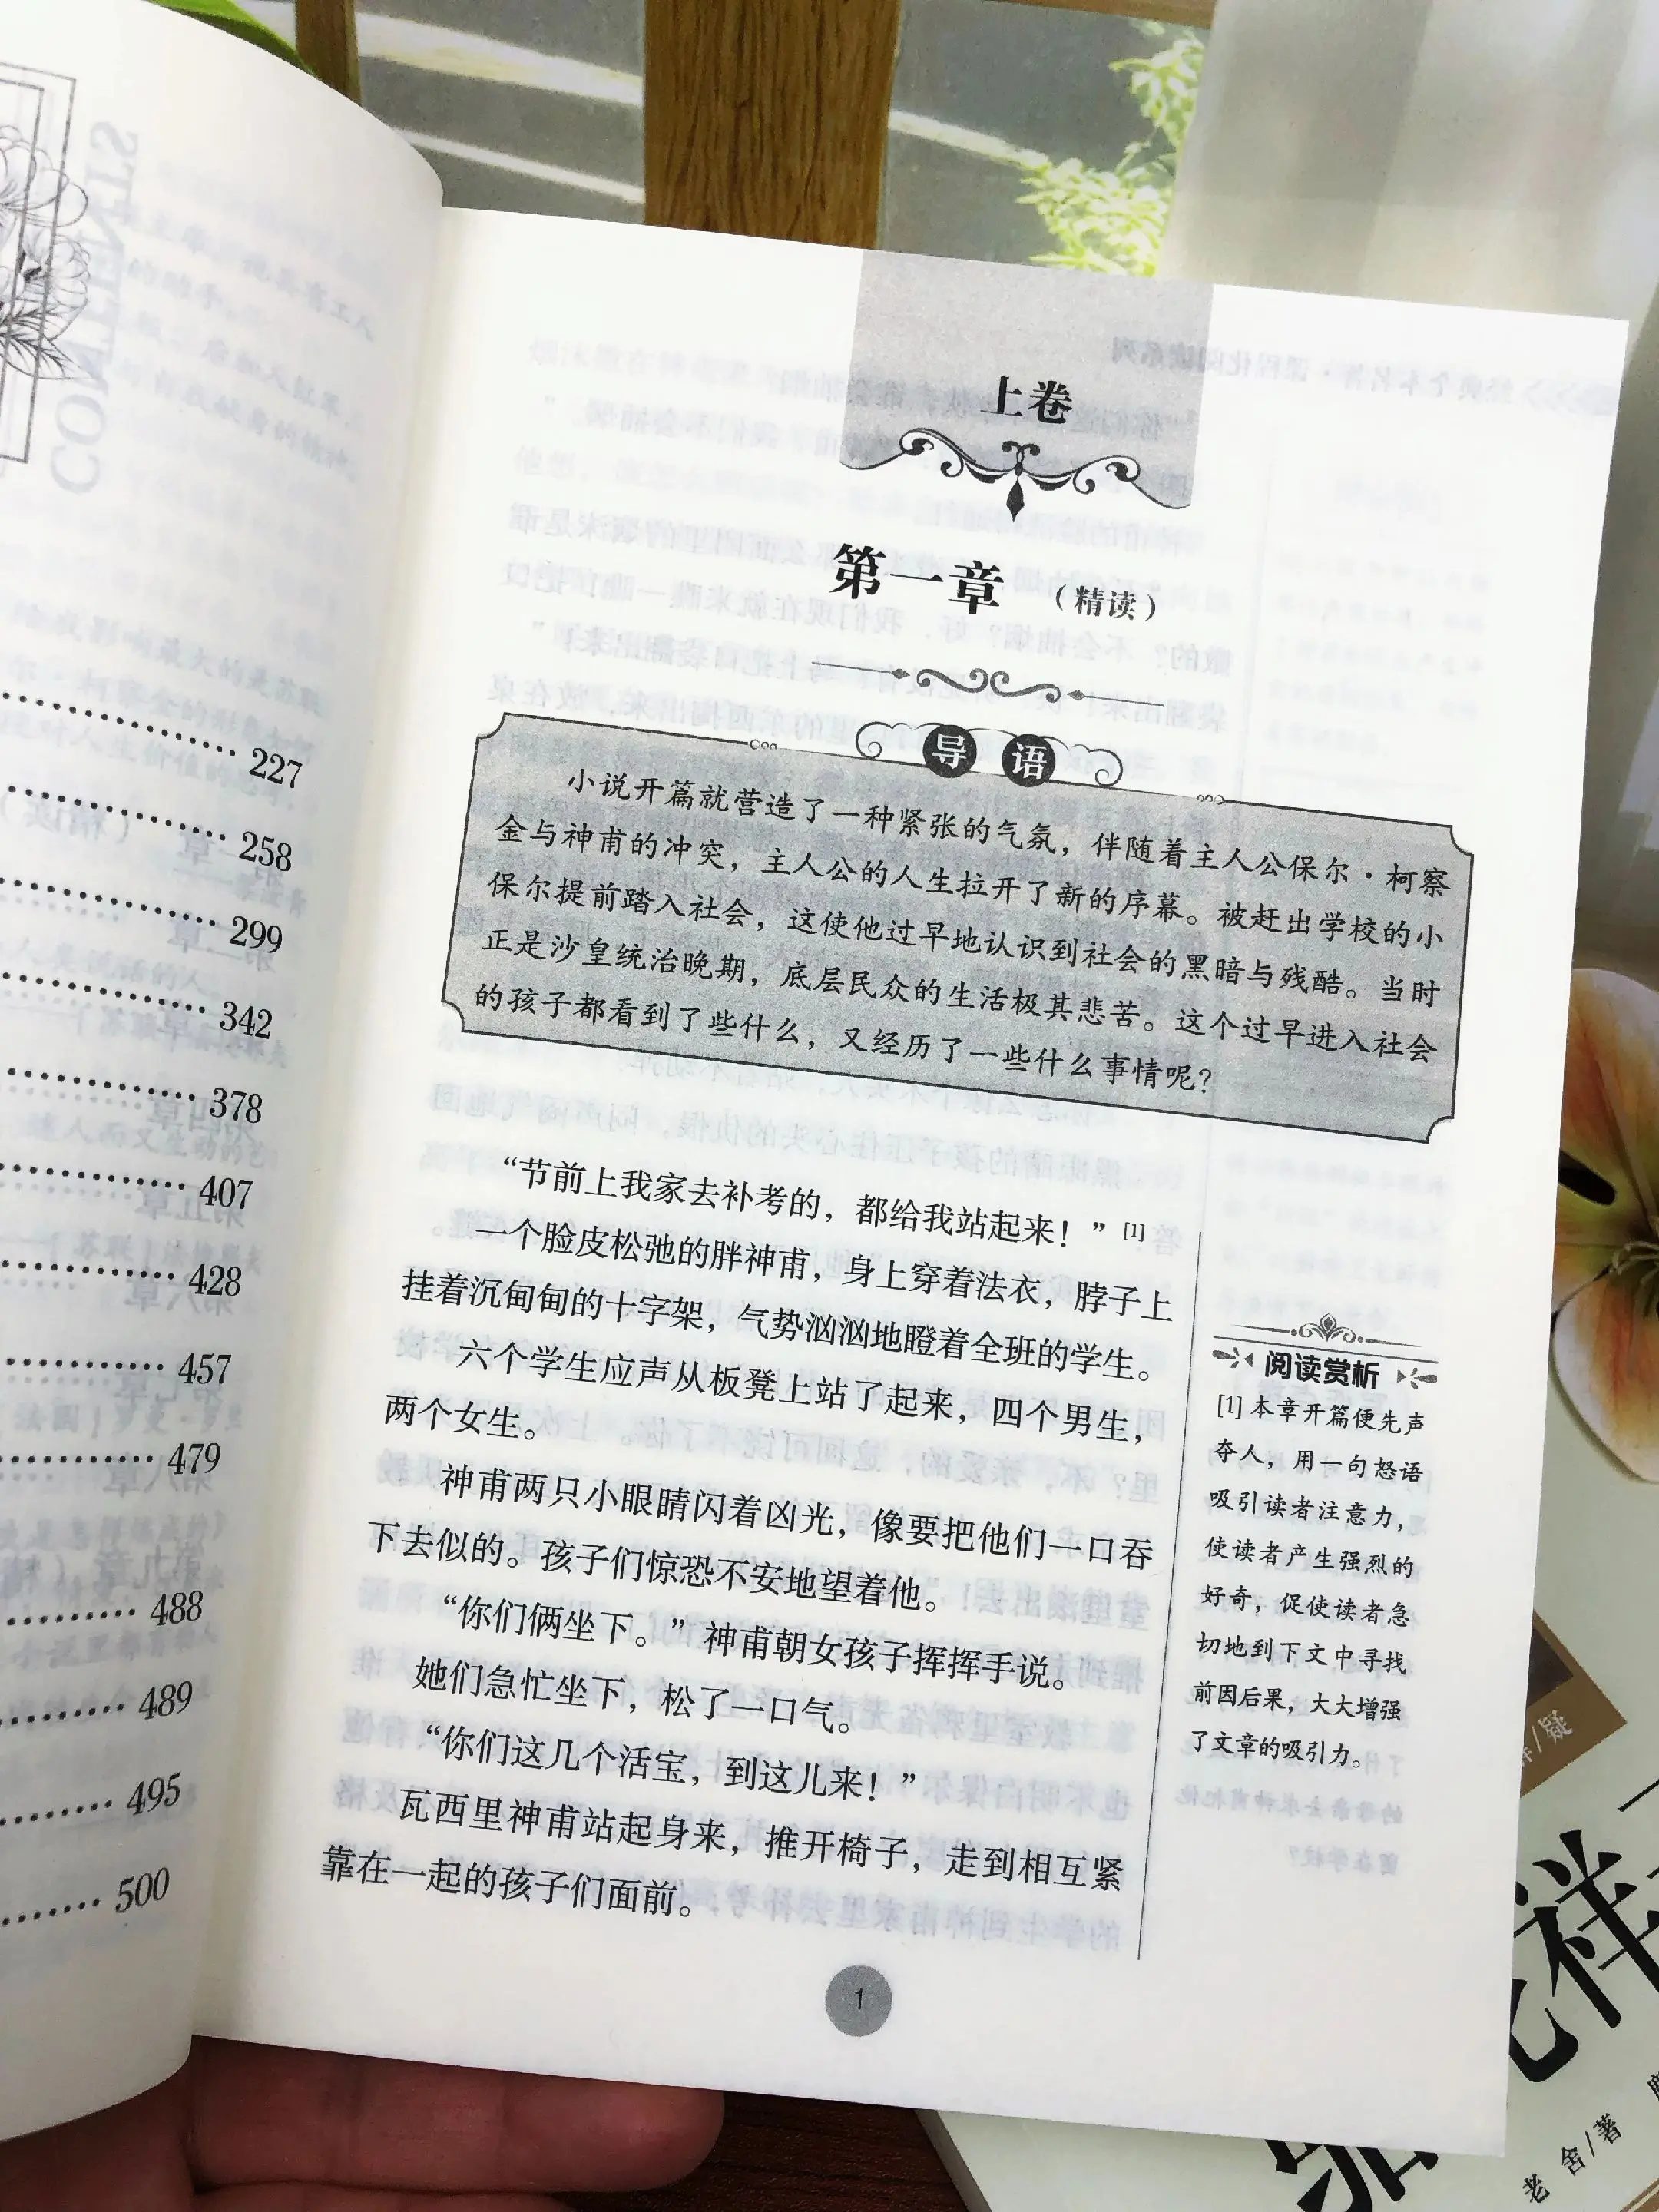 227
258
299
342
378
407
428
457
479
488
489
495
500
上卷
第一章 （精读）
导 语
小说开篇就营造了一种紧张的气氛，伴随着主人公保尔·柯察
金与神甫的冲突，主人公的人生拉开了新的序幕。被赶出学校的小
保尔提前踏入社会，这使他过早地认识到社会的黑暗与残酷。当时
正是沙皇统治晚期，底层民众的生活极其悲苦。这个过早进入社会
的孩子都看到了些什么，又经历了一些什么事情呢？
“节前上我家去补考的，都给我站起来！”[1]
一个脸皮松弛的胖神甫，身上穿着法衣，脖子上
挂着沉甸甸的十字架，气势汹汹地瞪着全班的学生。
六个学生应声从板凳上站了起来，四个男生，
两个女生。
神甫两只小眼睛闪着凶光，像要把他们一口吞
下去似的。孩子们惊恐不安地望着他。
“你们俩坐下。”神甫朝女孩子挥挥手说。
她们急忙坐下，松了一口气。
“你们这几个活宝，到这儿来！”
瓦西里神甫站起身来，推开椅子，走到相互紧
靠在一起的孩子们面前。
阅读赏析
[1] 本章开篇便先声
夺人，用一句怒语
吸引读者注意力，
使读者产生强烈的
好奇，促使读者急
切地到下文中寻找
前因后果，大大增强
了文章的吸引力。
1
/疑
祥
老 舍/著